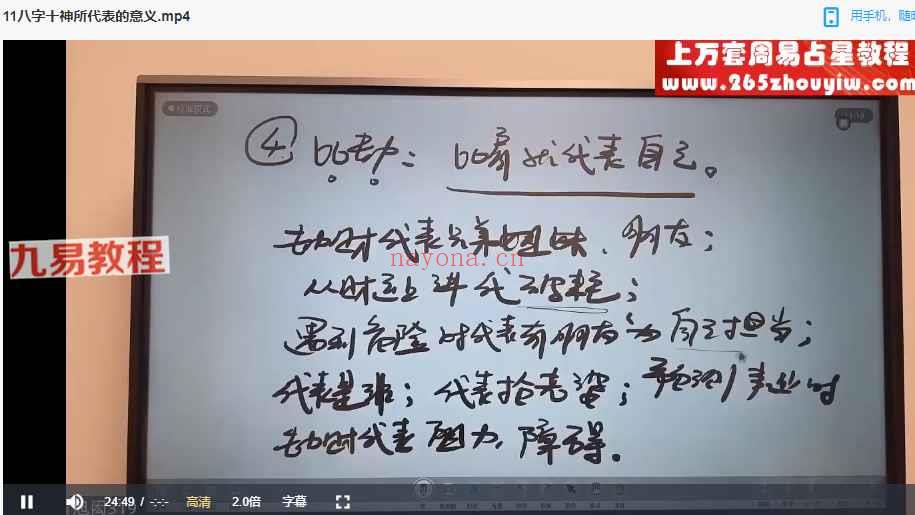 11八字十神所代表的意义.mp4
用手机，随时
上万套周易占星教程
www.265zhouyiw.com
④ 比劫： 比肩代表自己。
劫财代表兄弟姐妹、朋友；
九易教程
nayona.cn
从财运上讲代表破耗；
遇到危险时代表有朋友为自己担当；
代表是非；代表抢老婆；预测事业时
劫财代表阻力，障碍。
24:49 / -:-
高清
2.0倍
字幕